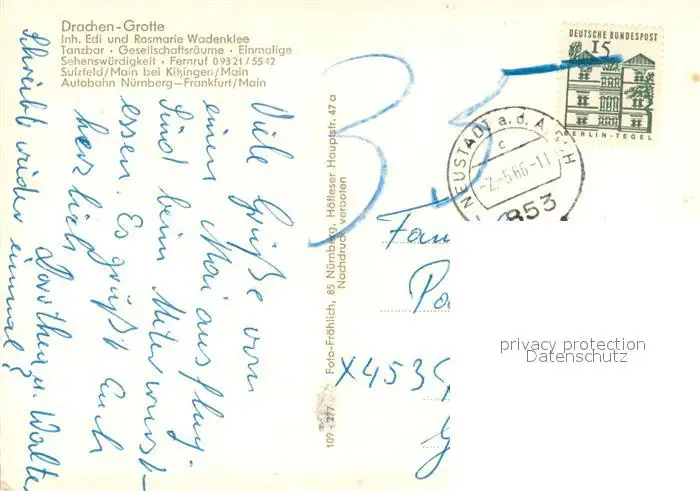 Drachen-Grotte
Inh. Edi und Rosmarie Wadenklee
Tanzbar · Gesellschaftsräume · Einmalige
Sehenswürdigkeit · Fernruf 0 93 21 / 55 42
Sulzfeld/Main bei Kitzingen/Main
Autobahn Nürnberg—Frankfurt/Main
Viele Grüße vom
einen Mai ausflug.
Sind beim Meterwurst-
essen. Es grüßt Euch
herzlich
Dorothea u. Walte
Schreibt wieder einmal!
109 - 277 Foto-Fröhlich, 85 Nürnberg, Höfleser Hauptstr. 47 a
Nachdruck verboten
35
DEUTSCHE BUNDESPOST
15
BERLIN-TEGEL
NEUSTADT a.d. AISCH
c
-2.-5.66-11
853
Fam
Po
X453
privacy protection
Datenschutz